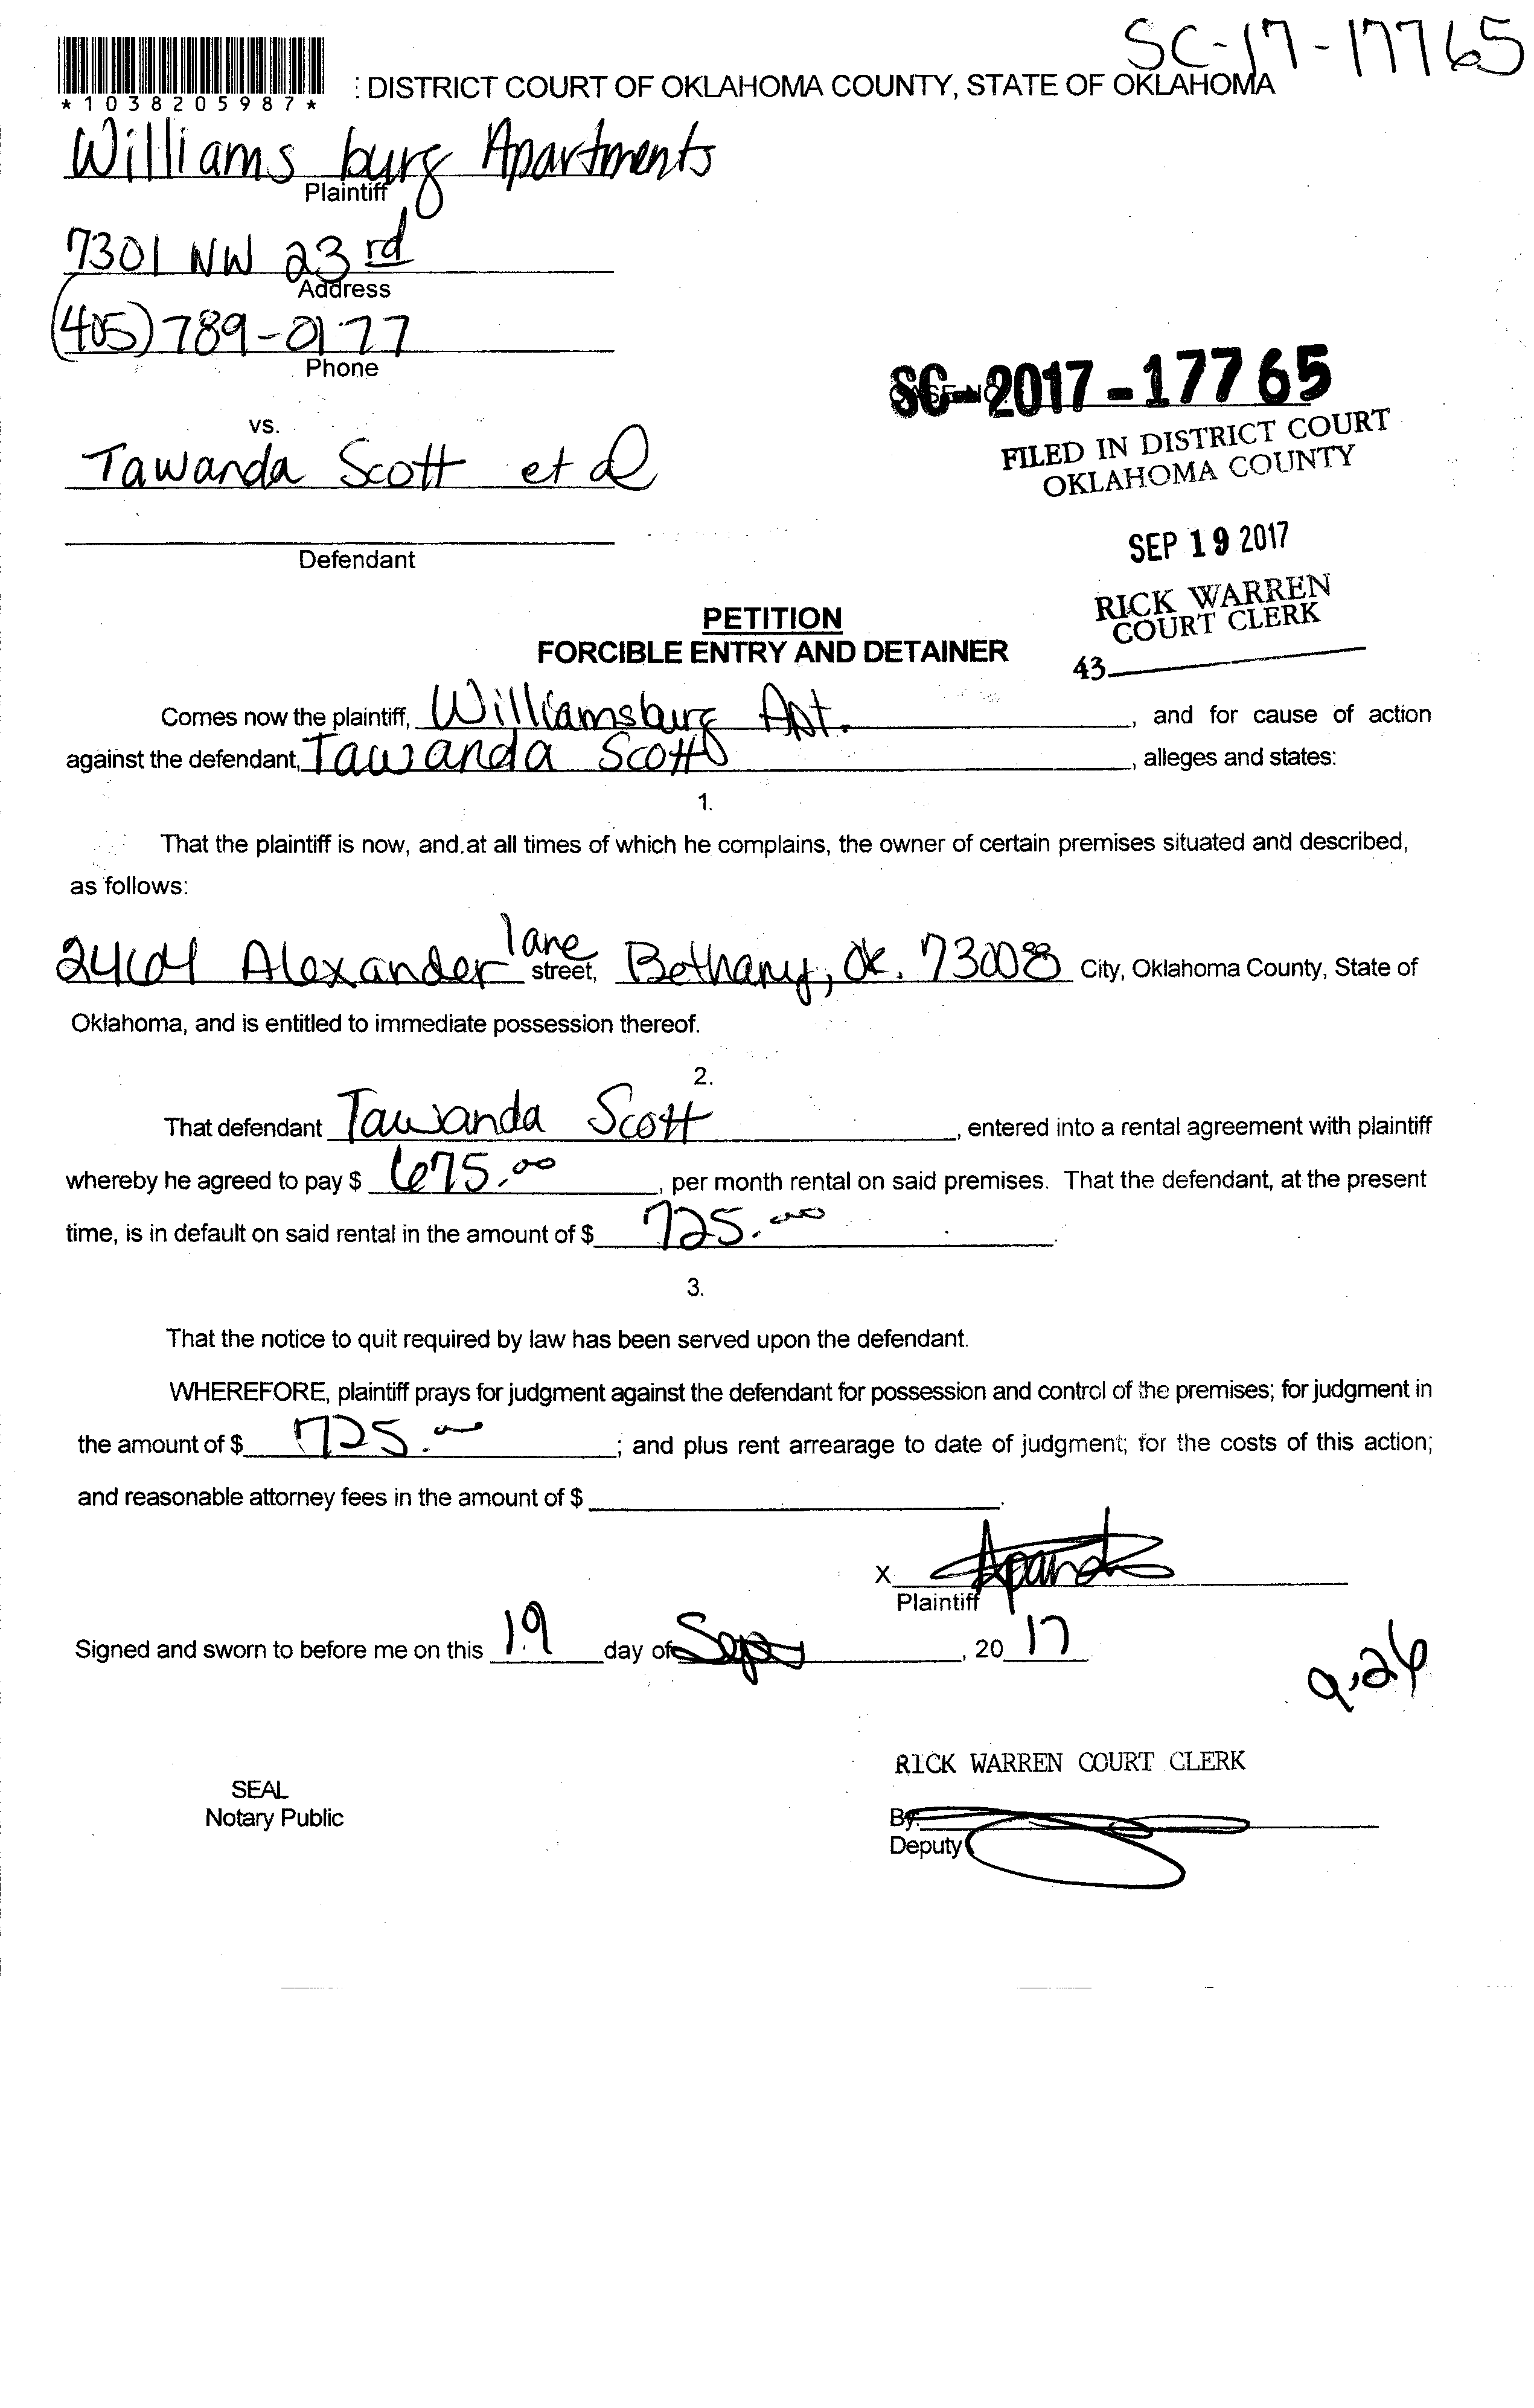 SC-17-17765
*1038205987*
: DISTRICT COURT OF OKLAHOMA COUNTY, STATE OF OKLAHOMA
Williams burg Apartments
Plaintiff
7301 NW 23rd
Address
(405) 789-0177
Phone
SC-2017-17765
vs.
FILED IN DISTRICT COURT
OKLAHOMA COUNTY
Tawanda Scott et al
SEP 19 2017
Defendant
RICK WARREN
COURT CLERK
43
PETITION
FORCIBLE ENTRY AND DETAINER
Comes now the plaintiff, Williamsburg Apt. , and for cause of action
against the defendant, Tawanda Scott , alleges and states:
1.
That the plaintiff is now, and at all times of which he complains, the owner of certain premises situated and described,
as follows:
Alexander lane street, Bethany, Ok. 73008 City, Oklahoma County, State of
Oklahoma, and is entitled to immediate possession thereof.
2.
That defendant Tawanda Scott , entered into a rental agreement with plaintiff
whereby he agreed to pay $ 675.00 , per month rental on said premises. That the defendant, at the present
time, is in default on said rental in the amount of $ 725.00 .
3.
That the notice to quit required by law has been served upon the defendant.
WHEREFORE, plaintiff prays for judgment against the defendant for possession and control of the premises; for judgment in
the amount of $ 725.00 ; and plus rent arrearage to date of judgment; for the costs of this action;
and reasonable attorney fees in the amount of $ .
X
Plaintiff
Signed and sworn to before me on this 19 day of Sept , 20 17
9.26
RICK WARREN COURT CLERK
SEAL
Notary Public
By:
Deputy